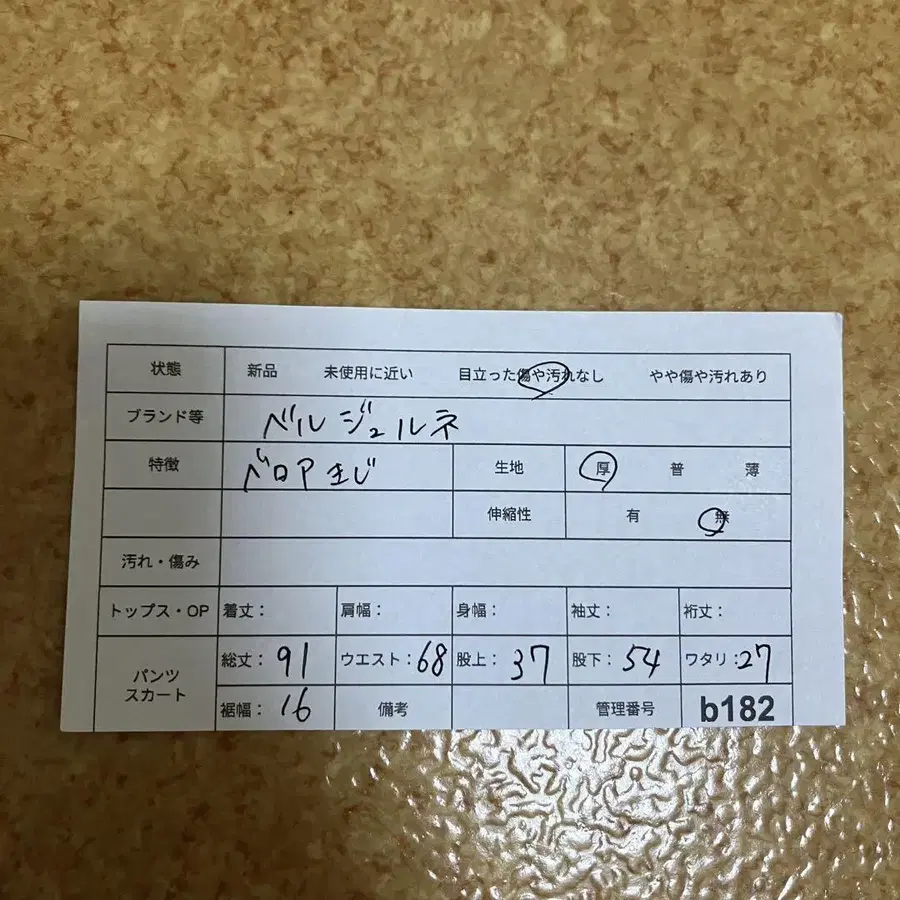 状態 新品 未使用に近い 目立った傷や汚れなし やや傷や汚れあり
ブランド等 ベルジュルネ
特徴 ベロア生じ 生地 厚 普 薄
伸縮性 有 無
汚れ・傷み
トップス・OP 着丈: 肩幅: 身幅: 袖丈: 裄丈:
パンツ スカート 総丈: 91 ウエスト: 68 股上: 37 股下: 54 ワタリ: 27
裾幅: 16 備考 管理番号 b182